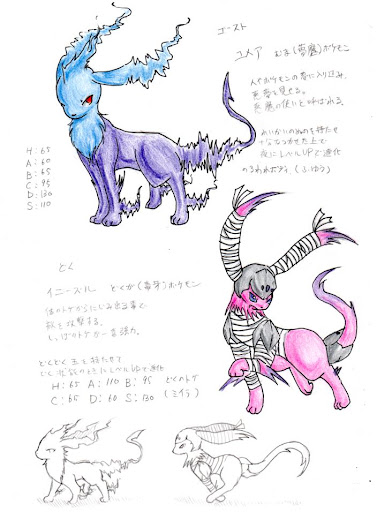 ゴースト
ユメア むま(夢魔)ポケモン
人やポケモンの夢に入り込み、
悪夢を見せる。
悪魔の使いと呼ばれる。
れいかいのぬのを持たせ
夜にレベルUPで進化
のろわれボディ (ふゆう)
H:65
A:60
B:65
C:95
D:130
S:110
どく
イニーズル どくが(毒牙)ポケモン
体のトゲからにじみ出る毒で
敵を攻撃する。
しっぽのトゲが一番強力。
どくどく玉を持たせて
どく状態のときにレベルUPで進化
H:65 A:110 B:95 どくのトゲ
C:65 D:60 S:130 (ミイラ)